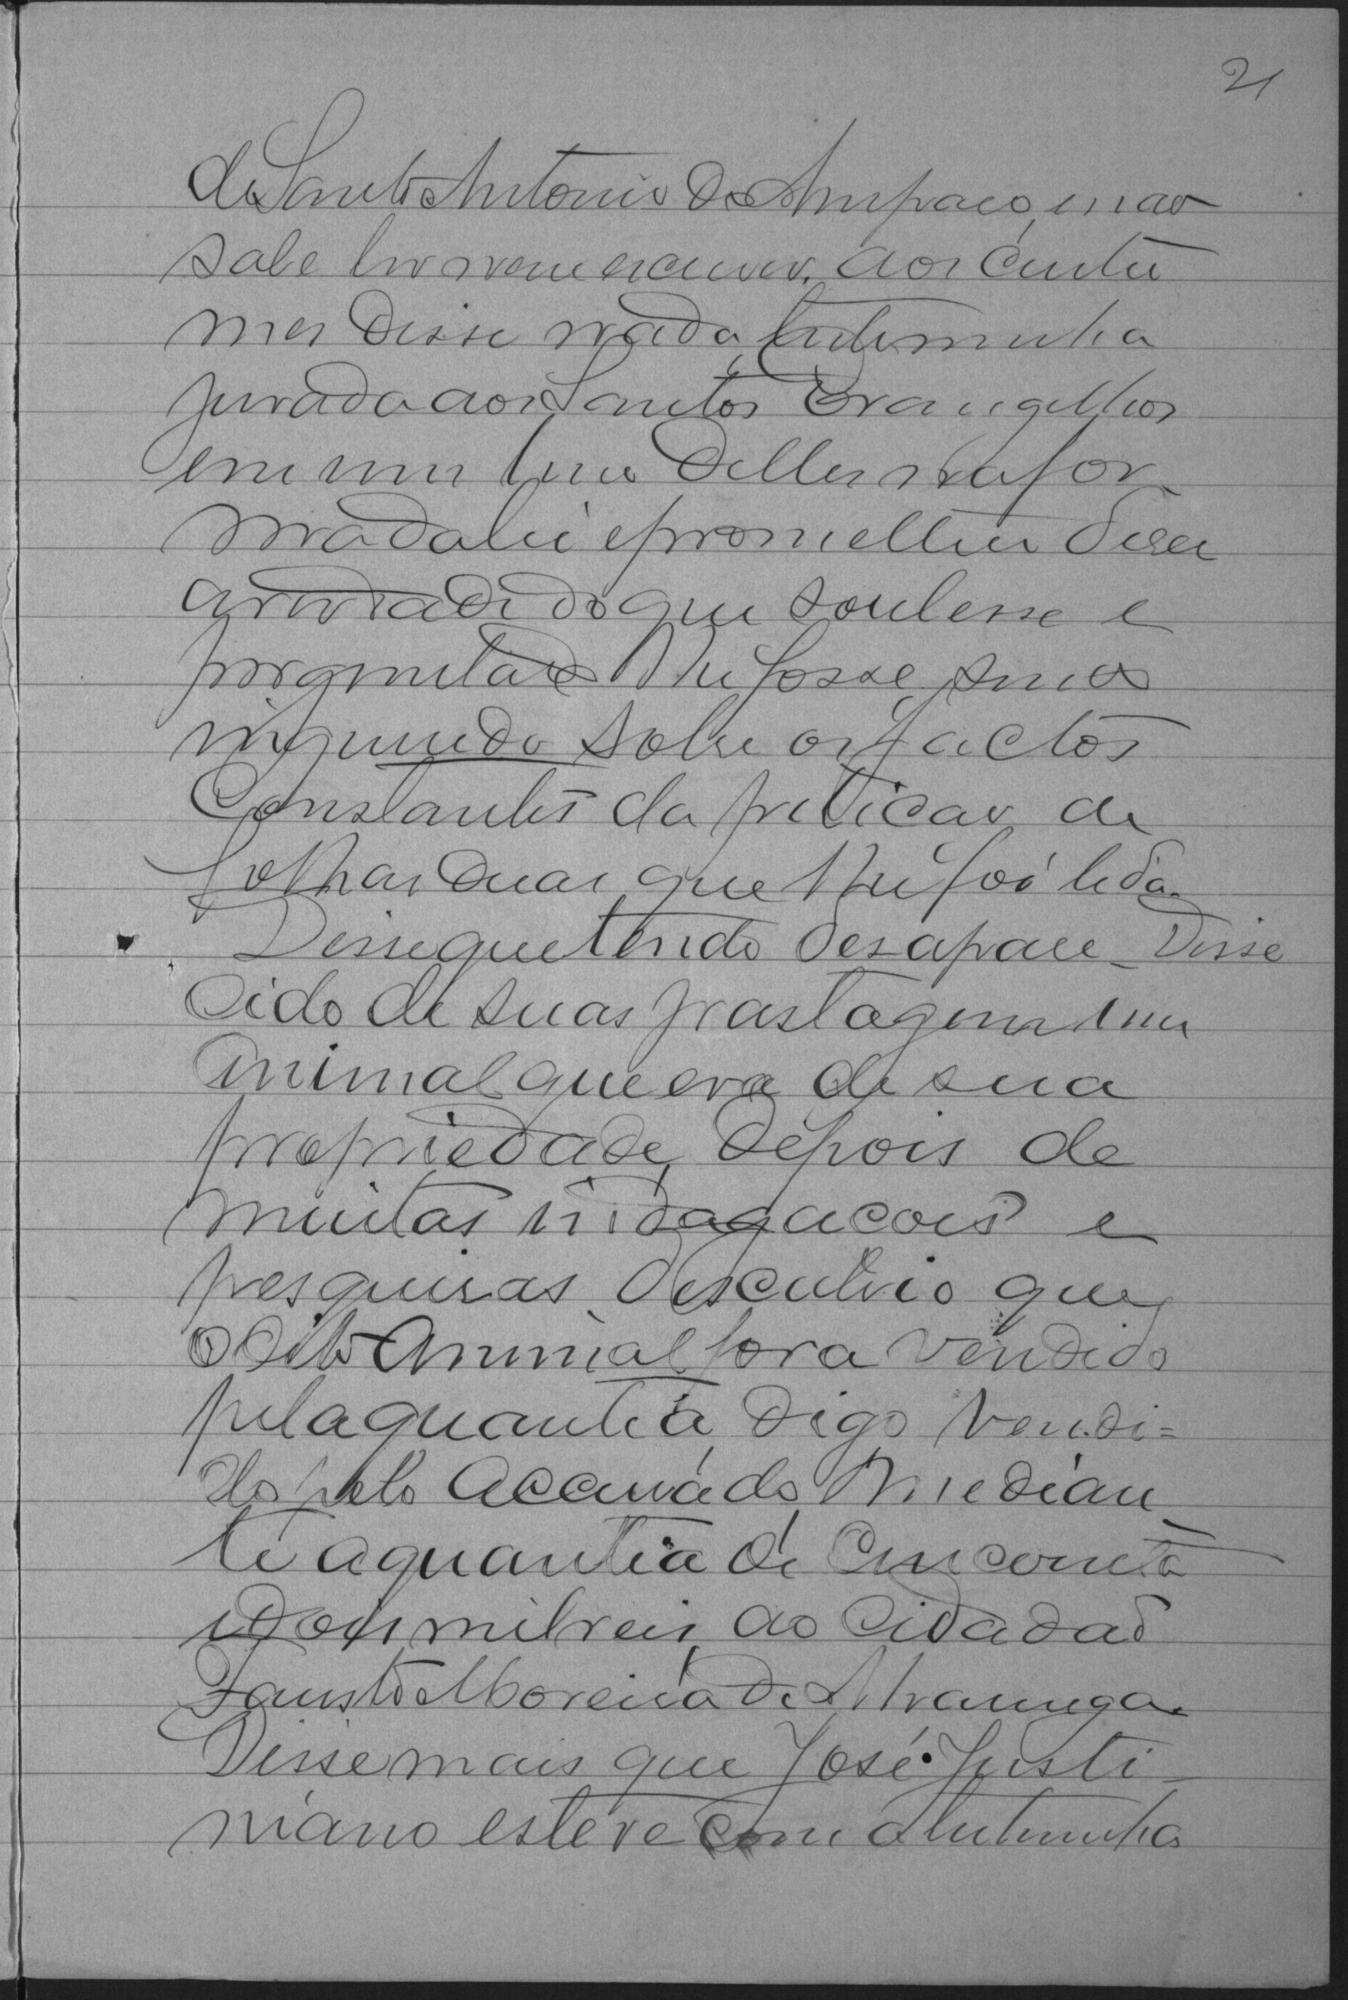 21
de Santo Antonio do Amparo, e nao
sabe ler nem escrever, aos custu
mes disse nada, testemunha
jurada aos Santos Evangelhos
em um livro delles na for
ma da lei e prometteu diser
a verdade do que soubesse e
perguntado lhe fosse, sendo
inquirido sobre os factos
Constantes da peticao de
folhas duas que lhe foi lida.
Disse que tendo desapare - Disse
cido de suas pastagens um
animal que era de sua
propriedade, depois de
muitas indagacois e
pesquisas descubrio que
o dito animal fora vendido
pela quantia, digo vendi=
do pelo accusado, median
te a quantia de cincoenta
e dois mil reis, ao cidadaõ
Fausto Moreira de Alvarenga.
Disse mais que José Justi
niano esteve com a testemunha